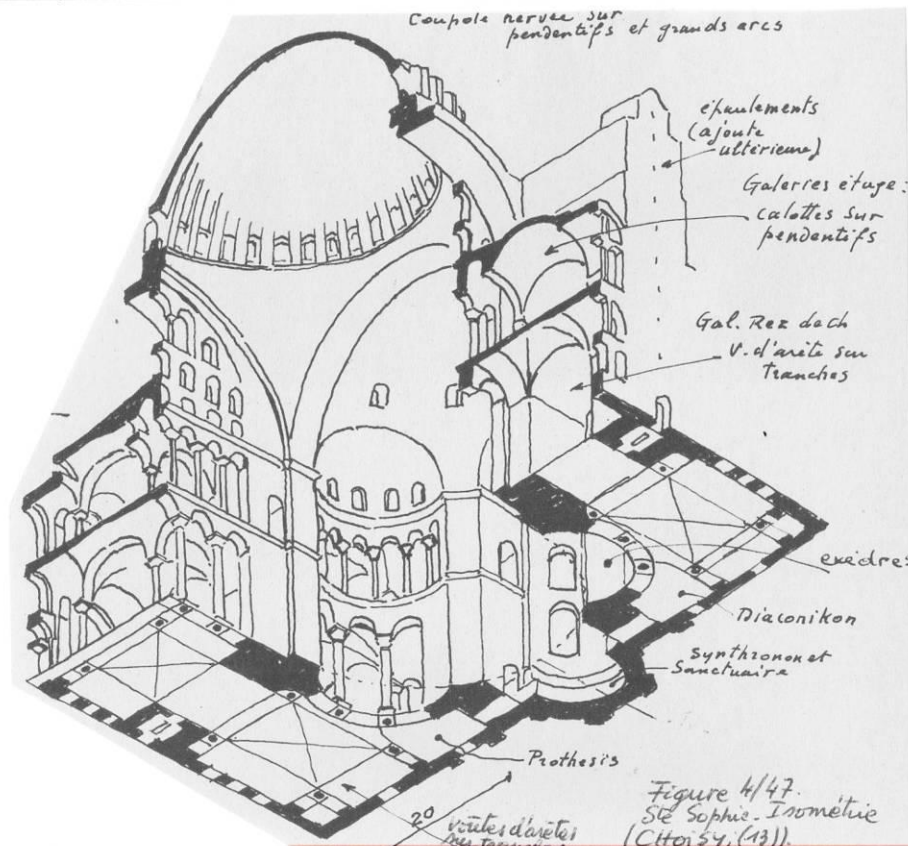 Coupole nervée sur
pendentifs et grands arcs
épaulements
(ajoute
ultérieure)
Galeries étage:
calottes sur
pendentifs
Gal. Rez dech
V. d'arête sur
tranches
exèdres
Diaconikon
Synthronon et
Sanctuaire
Prothesis
20
voûtes d'arêtes
sur tranches
Figure 4/47.
Ste Sophie. Isométrie
(CHOISY, (13)).